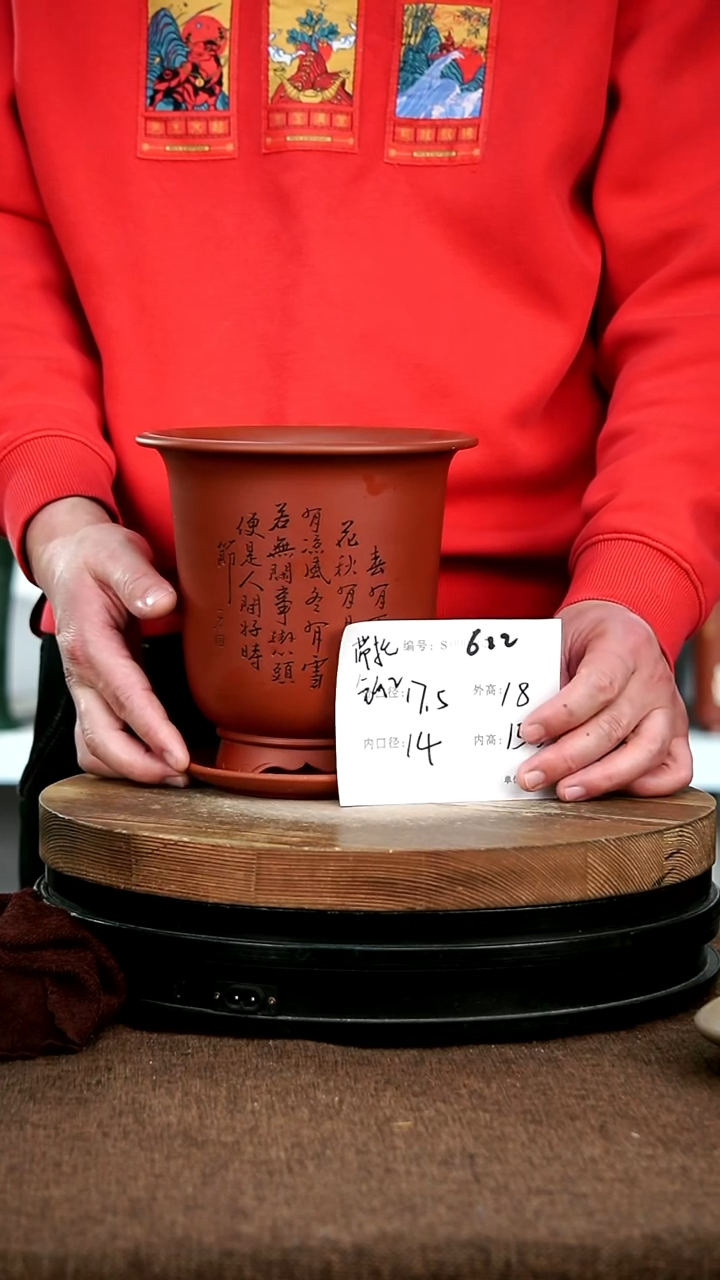 春有
花秋有月
有凉風冬有雪
若無閑事掛心頭
便是人間好時
節
带托 编号: S 612
径: 17.5 外高: 18
内口径: 14 内高: 15
单位